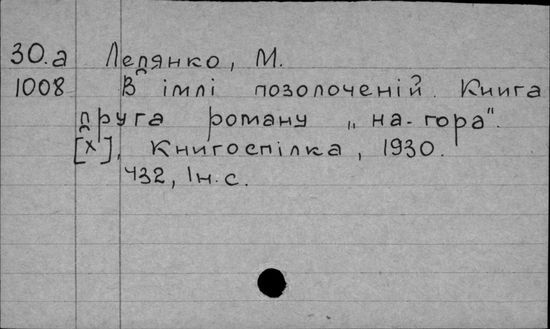 30.а Ледянко, М.
1008 В імлі позолоченій. Книга
друга роману „на-гора".
[Х], Книгоспілка, 1930.
432, 1н.с.